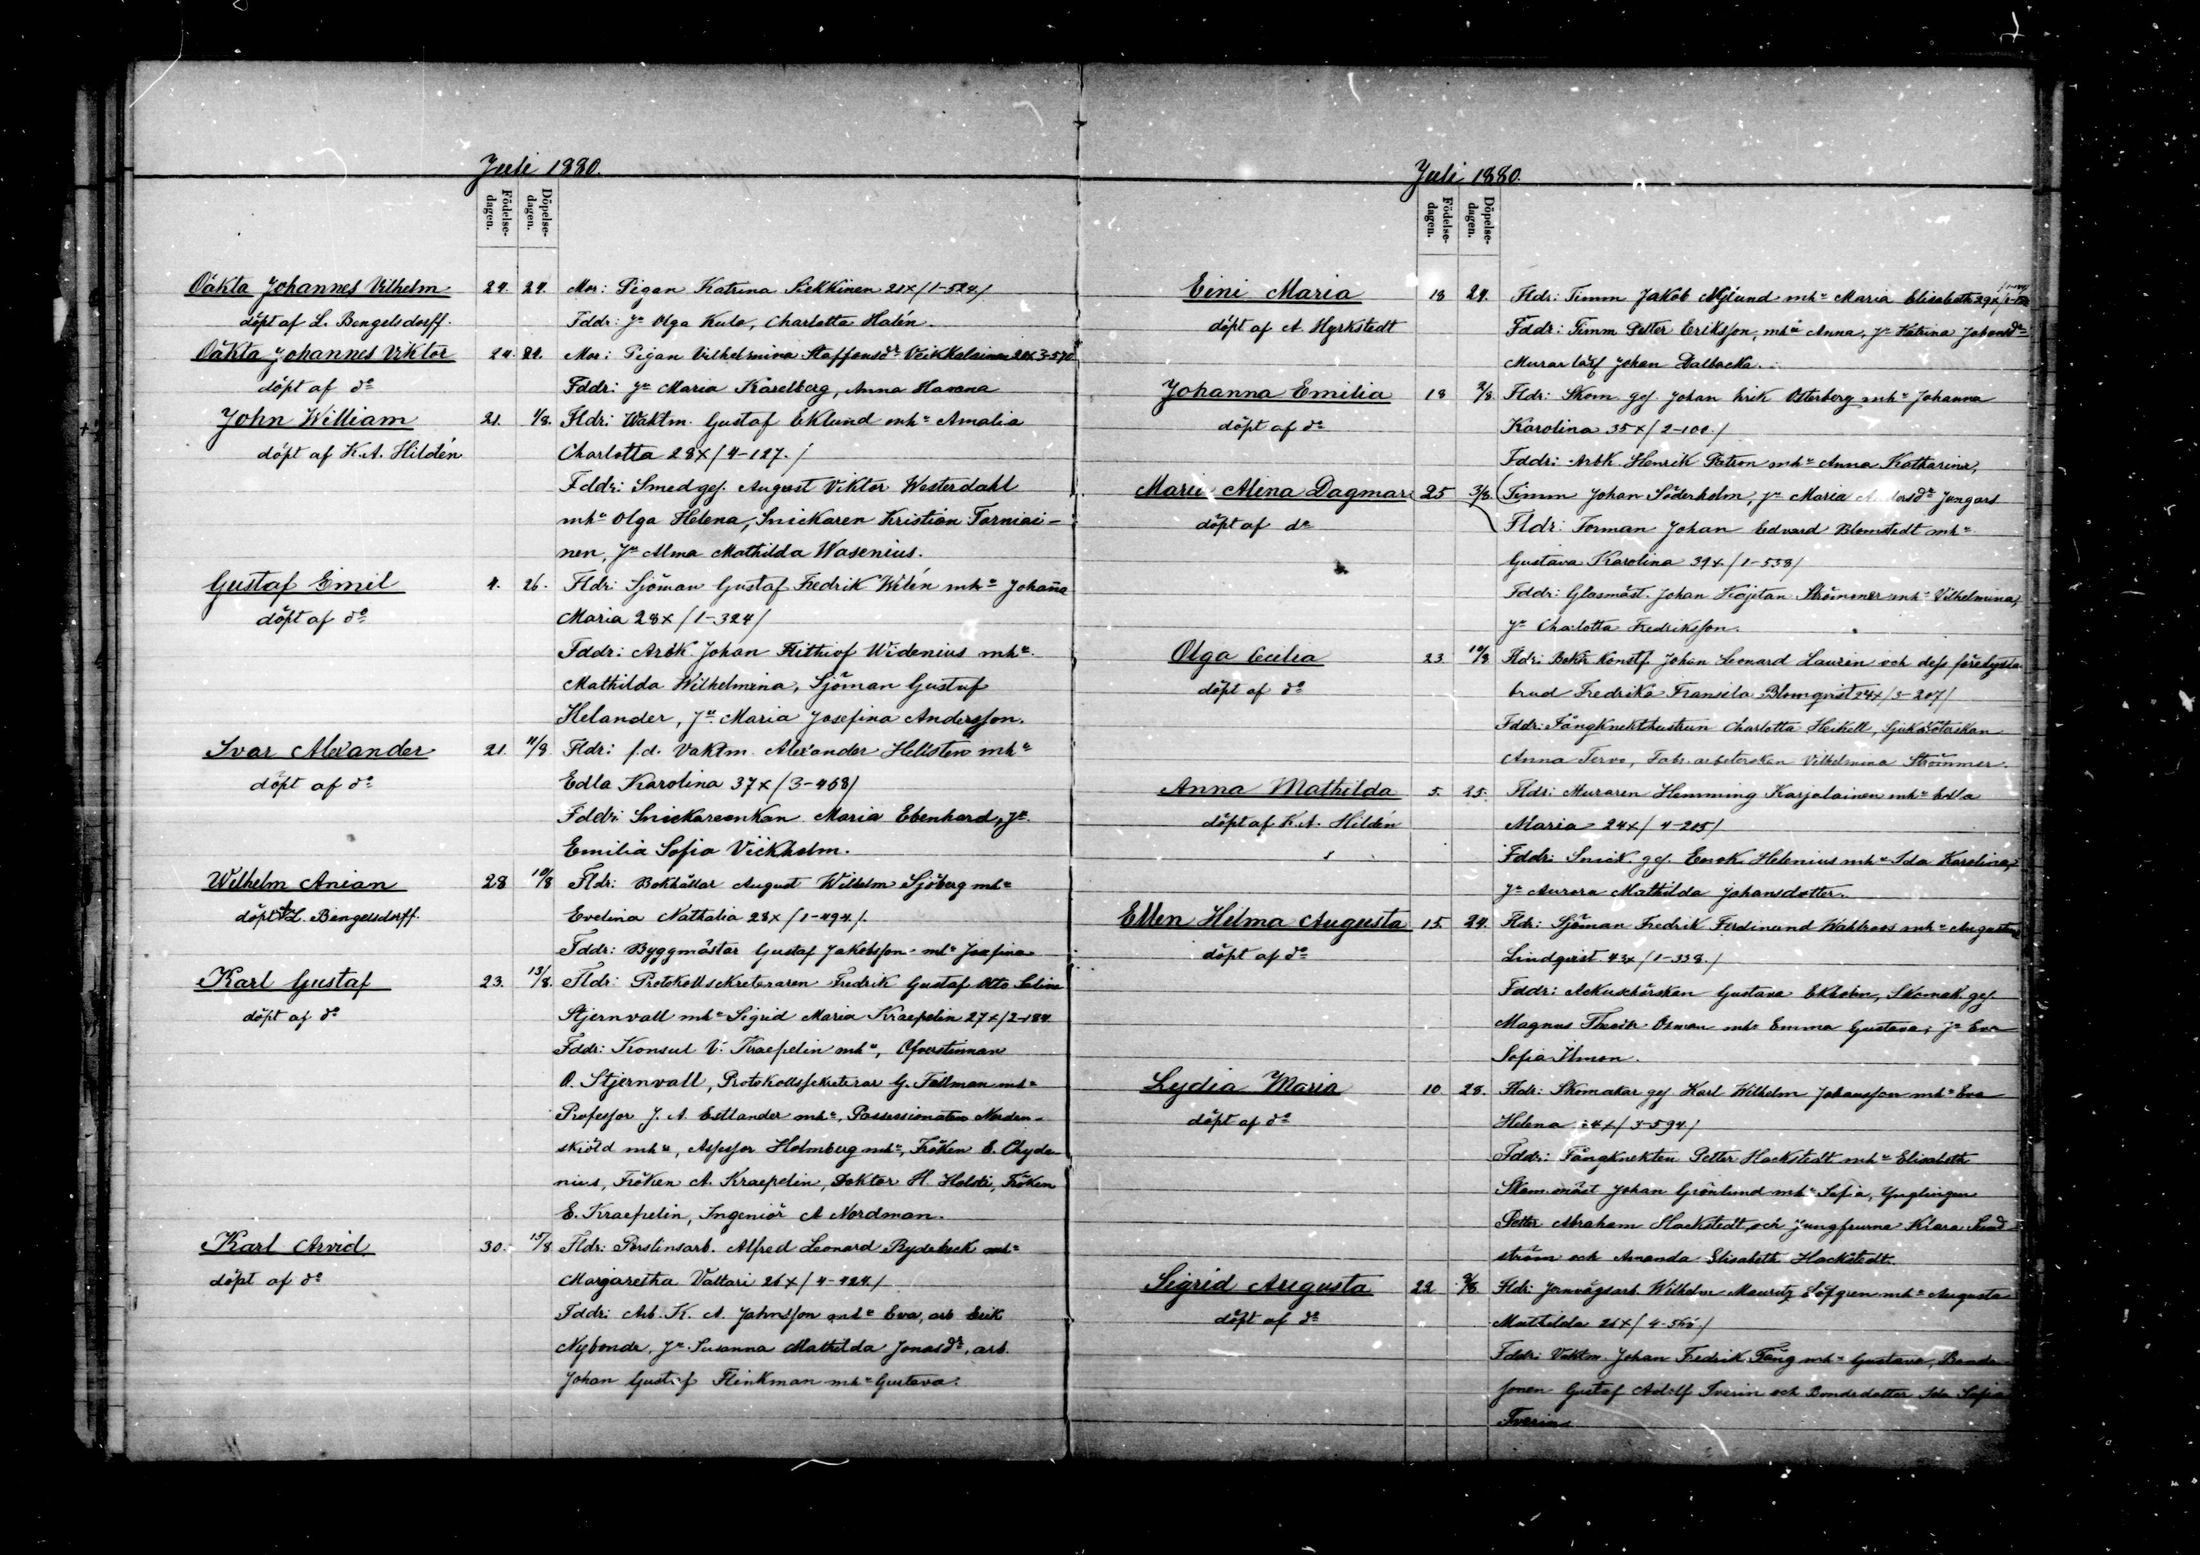 Juli 1880.
Födelse-dagen.
Döpelse-dagen.
Oäkta Johannes Vilhelm 24. 24. Mor: Pigan Katrina Sikkinen 21x/1-524/
döpt af L. Bengelsdorff. Fddr: Ju Olga Kulo, Charlotta Halén.
Oäkta Johannes Viktor 24. 24. Mor: Pigan Vilhelmina Staffansdr Veikkalainen 28x 3-570
döpt af do Fddr: Ju Maria Kåselberg, Anna Havana
John William 21. 1/8. Fldr: Waktm. Gustaf Eklund mhu Amalia
döpt af K.A. Hildén Charlotta 28x/4-127./
Fddr: Smedges. August Viktor Westerdahl
mhu Olga Helena, Snickaren Kristian Torniai-
nen, Ju Alma Mathilda Wasenius.
Gustaf Emil 4. 26. Fldr: Sjöman Gustaf Fredrik Wilén mhu Johanna
döpt af do Maria 28x/1-324/
Fddr: Arbk. Johan Frithiof Widenius mhu
Mathilda Wilhelmina, Sjöman Gustaf
Helander, Ju Maria Josefina Andersson.
Ivar Alexander 21. 11/8 Fldr: f.d. Vaktm. Alexander Hellsten mhu
döpt af do Edla Karolina 37x/3-468/
Fddr: Snickareenkan Maria Ebenhard, Ju
Emilia Sofia Vickholm.
Wilhelm Anian 28 10/8 Fldr: Bokhållar August Wilhelm Sjöberg mhu
döpt af L. Bengelsdorff. Evelina Nathalia 28x/1-494./
Fddr: Byggmästar Gustaf Jakobsson mhu Josefina
Karl Gustaf 23. 13/8. Fldr: Protokollsekreteraren Fredrik Gustaf Otto Selim
döpt af do Stjernvall mhu Sigrid Maria Kraepelin 27x/2-184
Fddr: Konsul V. Kraepelin mhu, Öfverstinnan
O. Stjernvall, Protokollsekreterar G. Tallman mhu
Professor J. A. Estlander mhu, Possessionaten Norden-
skiöld mhu, Assessor Holmberg mhu, Fröken E. Chyde-
nius, Fröken A. Kraepelin, Doktor H. Holsti, Fröken
E. Kraepelin, Ingeniör A Nordman.
Karl Arvid 30. 15/8 Fldr: Porslinsarb. Alfred Leonard Rydebeck mhu
döpt af do Margaretha Valtari 26x/4-424/
Fddr: Arb. K. A. Jahnsson mhu Eva, arb Erik
Nybonde, Ju Susanna Mathilda Jonasdr, arb.
Johan Gustaf Flinkman mhu Gustava.
Juli 1880.
Födelse-dagen.
Döpelse-dagen.
Eini Maria 18 24. Fldr: Timm Jakob Mylund mhu Maria Elisabeth 29x
döpt af A. Hyrkstedt Fddr: Timm Petter Eriksson, mhu Anna, Ju Katrina Johansdr
Murarlärl Johan Dalbacka.
Johanna Emilia 18 2/8 Fldr: Skom ges Johan Erik Österberg mhu Johanna
döpt af do Karolina 35x/2-100./
Fddr: Arbk. Henrik Patron mhu Anna Katharina,
Maria Alina Dagmar 25 3/8. Timm Johan Söderholm, Ju Maria Andersdr Jungars
döpt af do Fldr: Forman Johan Edvard Blomstedt mhu
Gustava Karolina 39x/1-538/
Fddr: Glasmäst. Johan Kajetan Strömmer mhu Vilhelmina,
Ju Charlotta Fredriksson.
Olga Cecilia 23 10/8 Fldr: Johan Leonard Laurén och dess förelysta
döpt af do brud Fredrika Fransila Blomqvist 24x/3-207/
Fddr: Fångknektshustrun Charlotta Heikell, Sjuksköterskan
Anna Tervo, Fabr. arbeterskan Vilhelmina Strömmer.
Anna Mathilda 5. 25. Fldr: Muraren Hemming Karjalainen mhu Edla
döpt af K.A. Hildén Maria 24x/4-205/
Fddr: Snick. ges. Enok Helenius mhu Ida Karolina,
Ju Aurora Mathilda Johansdotter.
Ellen Hilma Augusta 15. 24. Fldr: Sjöman Fredrik Ferdinand Wahlroos mhu Augusta
döpt af do Lindqvist 43x/1-338./
Fddr: Ackuschörskan Gustava Ekholm, Skomak. ges.
Magnus Osman mhu Emma Gustava, Ju Eva
Sofia Ilmon.
Lydia Maria 10 28. Fldr: Skomakar ges Karl Wilhelm Johansson mhu Eva
döpt af do Helena 24x/3-594/
Fddr: Fångknekten Petter Hackstedt mhu Elisabeth
Skom.mäst Johan Grönlund mhu Sofia, Ynglingen
Petter Abraham Hackstedt, och jungfrurna Klara Sund-
ström och Amanda Elisabeth Hackstedt.
Sigrid Augusta 22 2/8. Fldr: Jernvägsarb. Wilhelm Mauritz Löfgren mhu Augusta
döpt af do Mathilda 26x/4-560./
Fddr: Vaktm. Johan Fredrik Fång mhu Gustava, Bonde-
sonen Gustaf Adolf Tverin och Bondedotter Ida Sofia
Tverin